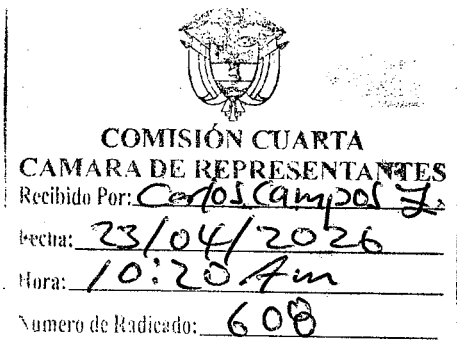 COMISIÓN CUARTA
CAMARA DE REPRESENTANTES
Recibido Por: Carlos Campos Z.
Fecha: 23/04/2026
Hora: 10:20 Am
Numero de Radicado: 608